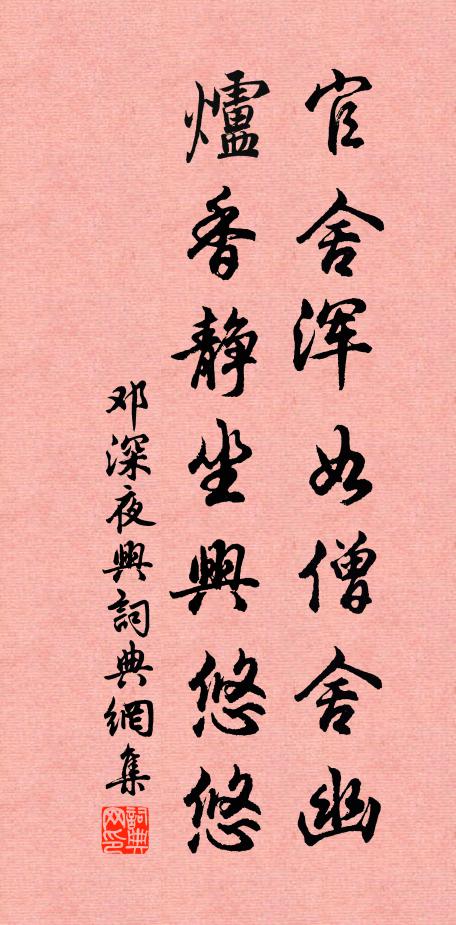 官舍浑如僧舍幽
爐香静坐興悠悠
邓深夜興詞典網集
詞典网印